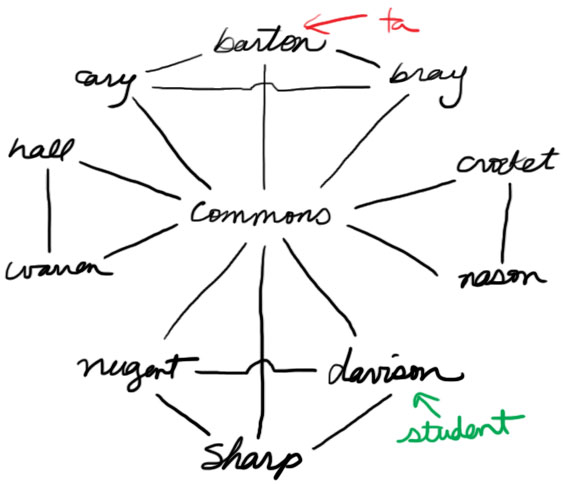 barton ta
cary bray
hall crocket
commons
warren nason
nugent davison
student
Sharp